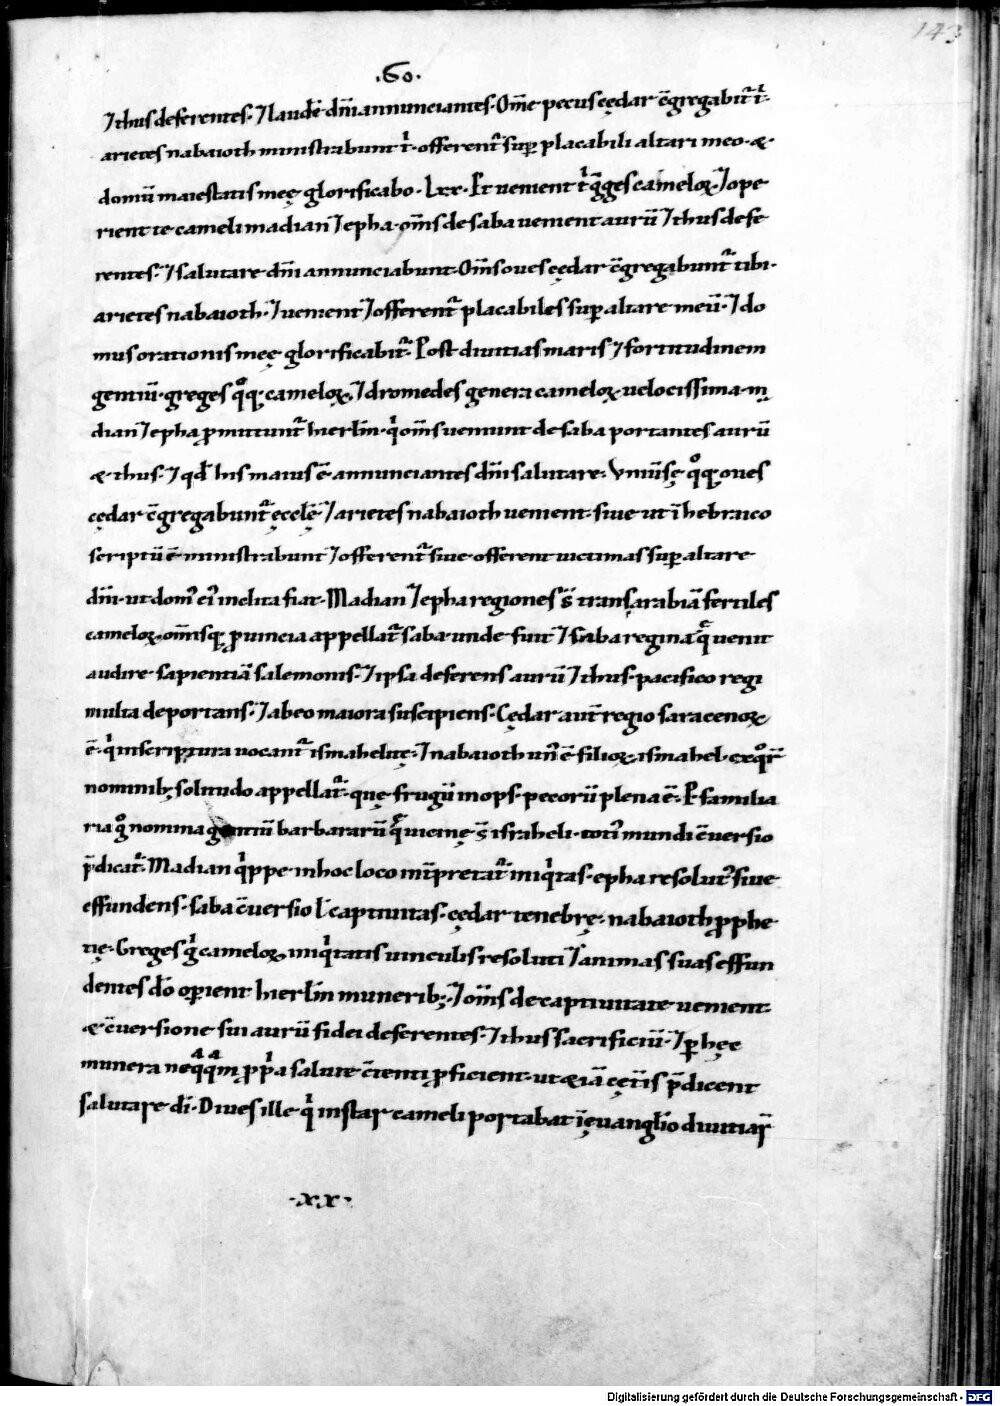 143
.60.
⁊ thus deferentes. ⁊ laudē dn̄i annunciantes. Om̄e pecus cędar c̄gregabit᷑ t'.
arietes nabaioth ministrabunt t'. offerent᷑ sup placabili altari meo. &
domū maiestatis meę glorificabo. Lxx. Et uenient t' g̊ges cameloꝝ. ⁊ ope
rient te cameli madian ⁊ epha. om̄s de saba uenient aurū ⁊ thus defe
rentes. ⁊ salutare dn̄i annunciabunt. Om̄s oues cędar c̄gregabunt᷑ tibi.
arietes nabaioth. ⁊ uenient ⁊ offerent᷑ placabiles sup altare meū. ⁊ do
mus orationis meę glorificabit᷑. Post diuitias maris ⁊ fortitudinem
gentiū. greges qͦꝗ. cameloꝝ, ⁊ dromedes genera cameloꝝ uelocissima. m
dian ⁊ epha ꝓmittunt᷑ hierlm̄. qͥ om̄s ueniunt de saba portantes aurū
& thus. ⁊ qđ his maius ē annunciantes dn̄i salutare. Vniūsę qͦꝗ oues
cędar c̄gregabunt᷑ ęcclę̄ ⁊ arietes nabaioth uenient. siue ut ī hebraico
scriptū ē ministrabunt ⁊ offerent᷑ siue offerent uictimas sup altare
dn̄i. ut dom' ei' inclita fiat. Madian ⁊ epha regiones s̄ trans arabiā fertiles
cameloꝝ. om̄isꝗ ꝓuincia appellat᷑ saba. unde fuit ⁊ saba regina q̄ uenit
audire sapientiā salemonis. ⁊ ipsa deferens aurū ⁊ thus. pacifico regi
multa deportans. ⁊ ab eo maiora suscipiens. Cędar aut̄ regio saracenoꝝ
ē. qͥ in scriptura uocant᷑ ismahelitę. ⁊ nabaioth un' ē filioꝝ ismahel. ex qͦꝝ
nominibꝫ solitudo appellat᷑. quę frugū inops. pecorū plena ē. P familia
ria g̊ nomina gentiū barbararū q̄ uicinę s̄ israheli. toti' mundi c̄uersio
p̄dicat᷑. Madian qͥppe in hoc loco int̄pretat᷑ iniqͥtas. epha resolut' siue
effundens. saba c̄uersio l' captiuitas. cędar tenebrę. nabaioth ꝓphe
tię. Greges g̊ cameloꝝ iniqͥtatis uinculis resoluti ⁊ animas suas effun
dentes dō opient hierlm̄ muneribꝫ. ⁊ om̄s de captiuitate uenient
& c̄uersione sui aurū fidei deferentes. ⁊ thus sacrificiū. ⁊ ꝑ hęc
munera neqͣqͣm ꝓpͥa salute c̄tenti ꝓficient. ut & iā cęt̄is p̄dicent
salutare dī. Diues ille qͥ instar cameli portabat ī ęuanglio diuitiaꝝ
.xx.
Digitalisierung gefördert durch die Deutsche Forschungsgemeinschaft - DFG